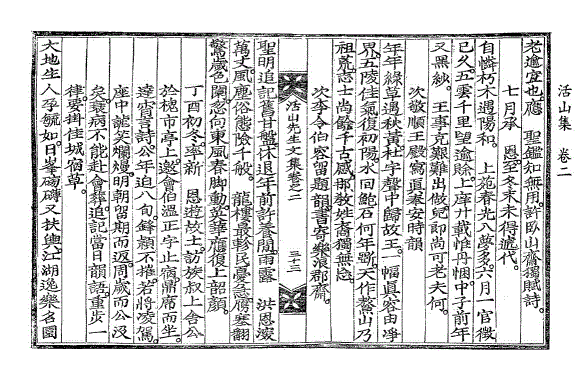 活山集 卷二
老逾宜也應 聖鑑如無用許臥山齋獨賦詩
七月承 恩至冬末未得遞代
自憐朽木遇陽和 上苑春光入夢多六月一官徵
已久五雲千里望逾賒上庠廾載惟丹悃中子前年
又黑紗 王事克艱難出做兒即尚可老夫何
次敬順王殿寫眞奉安時韻
年年綠草遇秋黃杜宇聲中歸故王一幅眞容由淨
界五陵佳氣復初陽水回鮑石何年斷天作鰲山乃
祖荒志士尙餘千古感那敎姓裔獨無忘
次李令伯容留題韻書寄樂浪郡齋
活山先生文集卷之二 三十三
聖明追記舊甘盤休退年前許養閒雨露 洪恩深
萬丈風塵俗態險千般 龍樓最軫民憂急鴈塞翻
驚歲色闌忽向東風春脚動英華應復上韶顏
丁酉初冬率新 恩遊故土訪族叔上舍公
於槐市亭上邀會伯溫正字止宿鼎席而坐
達宵呈詩公年迫八旬鋒穎不摧若將凌駕
座中謔笑爛熳明朝留期而返周歲而公沒
矣衰病不能赴會葬追記當日韻語重步一
律要掛佳城宿草
大地生人孕毓如日峯磅礴又扶輿江湖逸樂名園